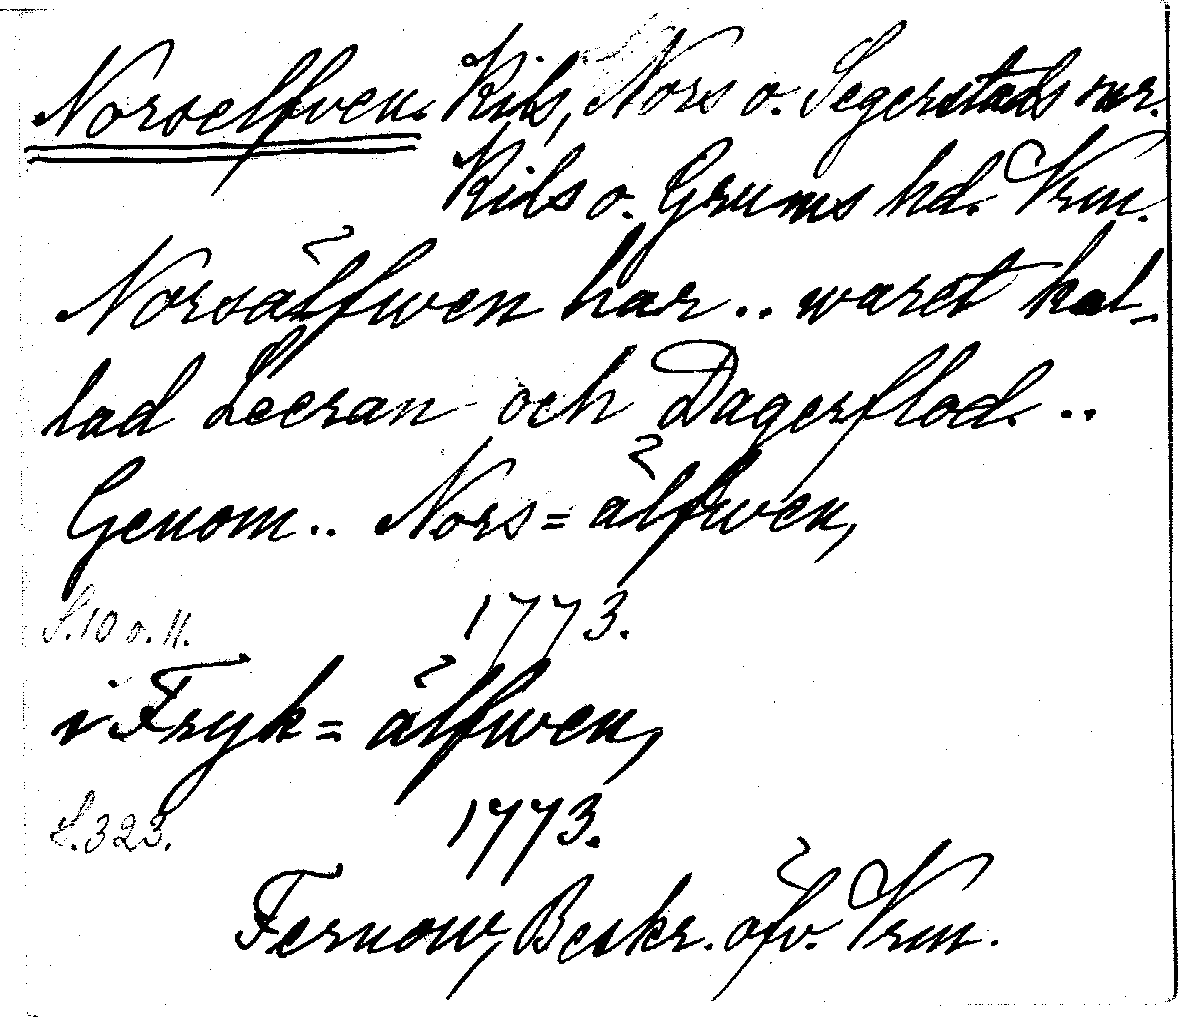 Norselfven. Kils, Nors o. Segerstads snr.
Kils o. Grums hd. Vrm.
Norsälfwen har .. waret kal-
lad Leeran och Dagerflod. ..
Genom .. Nors=älfwen,
S. 10 o. 11. 1773.
i Fryk=älfwen,
S. 323. 1773.
Fernow, Beskr. öfv. Vrm.